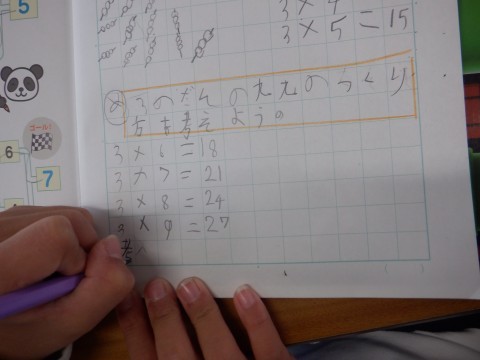 5
3×4
3×5=15
め 3のだんの九九のつくり
方を考えよう。
ゴール!
6
7
3×6=18
3×7=21
3×8=24
3×9=27